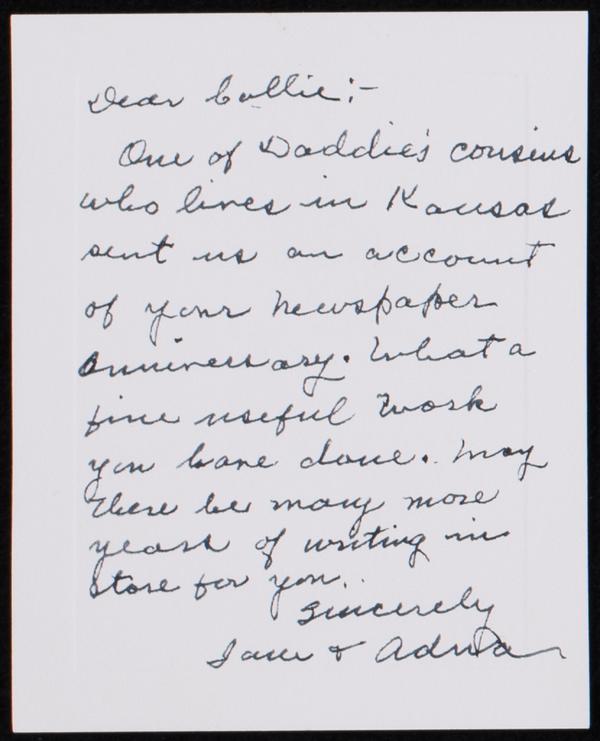 Dear Collie:-
One of Daddie's cousins
who lives in Kansas
sent us an account
of your newspaper
anniversary. What a
fine useful work
you have done. May
there be many more
years of writing in
store for you.
Sincerely
Jane &